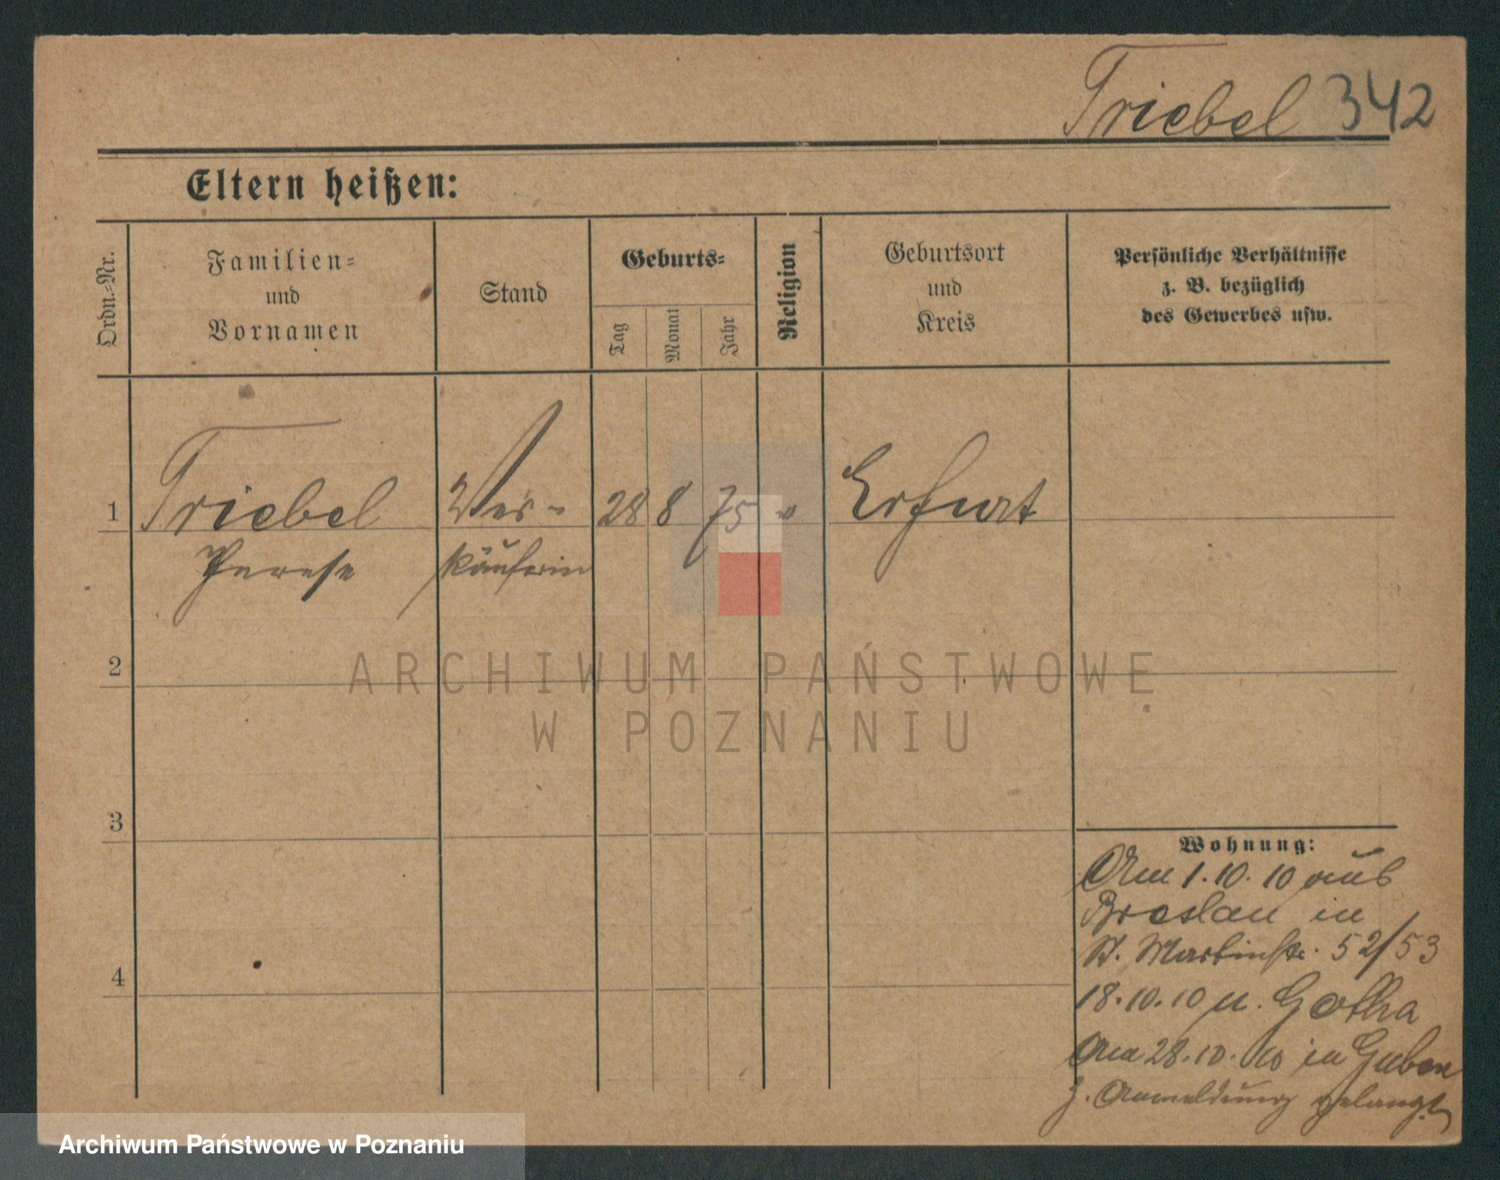 Triebel 342
Eltern heißen:
Ordn.-Nr.
Familien-
und
Vornamen
Stand
Geburts-
Tag
Monat
Jahr
Religion
Geburtsort
und
Kreis
Persönliche Verhältnisse
z. B. bezüglich
des Gewerbes usw.
1 Triebel Ver- 28 8 75 Erfurt
käuferin
2
3
4
Wohnung:
Am 1.10.10 aus
Breslau in
St. Martinstr. 52/53
18.10.10 n. Gotha
Am 28.10.10 in Guben
z. Anmeldung gelangt
ARCHIWUM PAŃSTWOWE
W POZNANIU
Archiwum Państwowe w Poznaniu